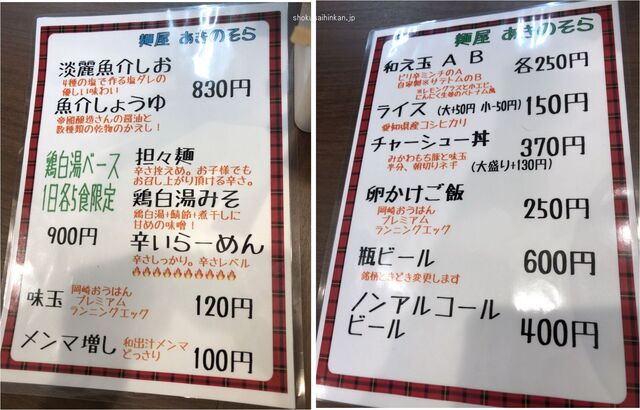 麺屋 あきのそら
淡麗魚介しお 830円
4種の塩で作る塩ダレの
優しい味わい
魚介しょうゆ
帝国醸造さんの醤油と
数種類の乾物のかえし!
鶏白湯ベース
1日各5食限定
900円
担々麺
辛さ控えめ。お子様でも
お召し上がり頂ける辛さ。
鶏白湯みそ
鶏白湯+鯖節+煮干しに
甘めの味噌!
辛いらーめん
辛さしっかり。辛さレベル
味玉 120円
岡崎おうはん
プレミアム
ランニングエッグ
メンマ増し 100円
和出汁メンマ
どっさり
shokusaihinkan.jp
麺屋 あきのそら
和え玉 A B 各250円
ピリ辛ミンチのA
自家製×サテトムのB
※レモングラスとホエビ、
にんにく生姜のベトナム風
ライス (大+50円 小-50円) 150円
愛知県産コシヒカリ
チャーシュー丼 370円
みかわもち豚と味玉
半分、朝切りネギ
(大盛り+130円)
卵かけご飯 250円
岡崎おうはん
プレミアム
ランニングエッグ
瓶ビール 600円
銘柄ときどき変更します
ノンアルコール
ビール 400円